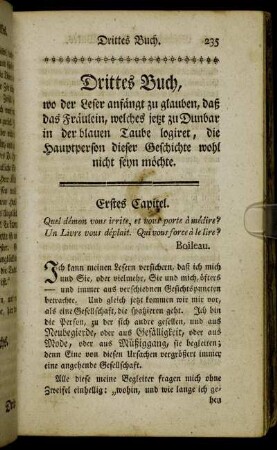 Drittes Buch. 235
Drittes Buch,
wo der Leser anfängt zu glauben, daß
das Fräulein, welches jetzt zu Dunbar
in der blauen Taube logiret, die
Hauptperson dieser Geschichte wohl
nicht seyn möchte.
Erstes Capitel.
Quel démon vous irrite, et vous porte à médire?
Un Livre vous déplait. Qui vous force à le lire?
Boileau.
Ich kann meinen Lesern versichern, daß ich mich
und Sie, oder vielmehr, Sie und mich öfters
— und immer aus verschiednen Gesichtspuncten
betrachte. Und gleich jetzt kommen wir mir vor,
als eine Gesellschaft, die spatzieren geht. Ich bin
die Person, zu der sich andre gesellen, und aus
Neubegierde, oder aus Gefälligkeit, oder aus
Mode, oder aus Müßiggang, sie begleiten;
denn Eine von diesen Ursachen vergrößert immer
eine angehende Gesellschaft.
Alle diese meine Begleiter fragen mich ohne
Zweifel einhellig: „wohin, und wie lange ich ge-
hen